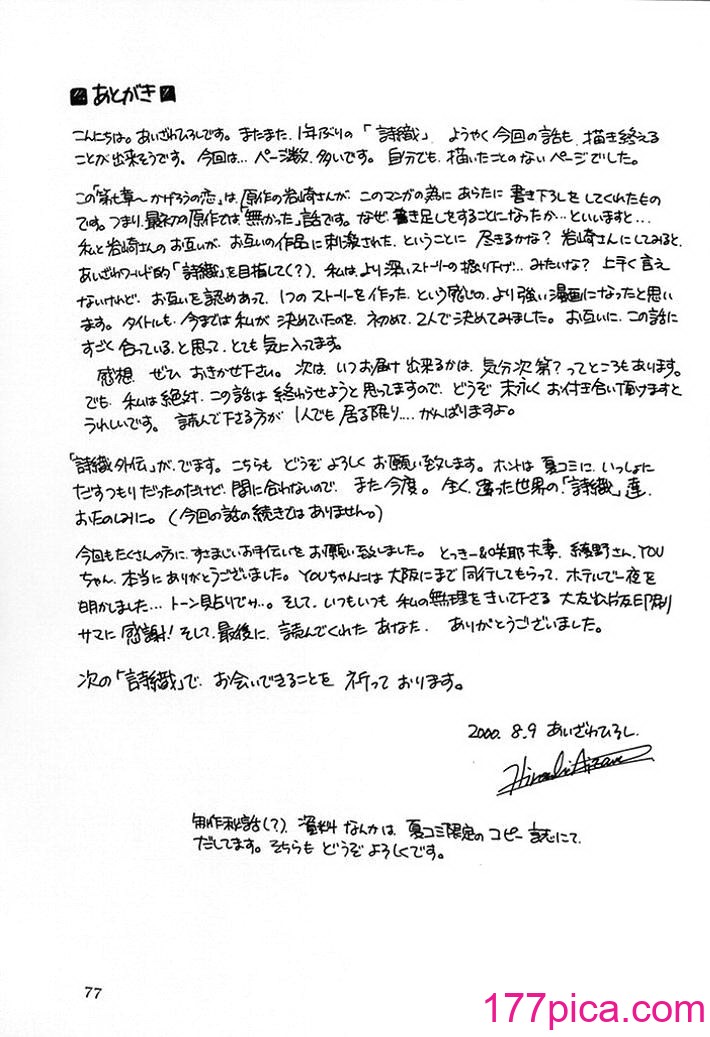 あとがき
こんにちは。あいざわひろしです。またまた、1年ぶりの「詩織」 ようやく今回の話も、描き終える
ことが出来そうです。今回は… ページ数、多いです。自分でも、描いたことのないページでした。
この「第七章〜かげろうの恋」は、原作の岩崎さんが、このマンガの為にあらたに書き下ろしをしてくれたもの
です。つまり、最初の原作では「無かった」話です。なぜ、書き足しをすることになったか…といいますと…
私と岩崎さんのお互いが、お互いの作品に刺激された、ということに 尽きるかな? 岩崎さんにしてみると、
あいざわワールド的「詩織」を目指して(?)、私は、より深いストーリーの掘り下げ…みたいな? 上手く言え
ないけれど、お互いを認めあって、1つのストーリーを作った、という感じの、より強い漫画になったと思い
ます。タイトルも、今までは私が決めていたのを、初めて、2人で決めてみました。お互いに、この話に
すごく合っている、と思って、とても気に入ってます。
感想、ぜひ おきかせ下さい。次は、いつお届け出来るかは、気分次第?ってところもあります。
でも、私は絶対、この話は終わらせようと思ってますので、どうぞ 末永くお付き合い頂けますと
うれしいです。読んで下さる方が 1人でも居る限り…がんばりますよ。
「詩織外伝」が、でます。こちらも どうぞよろしくお願い致します。ホントは夏コミに、いっしょに
だすつもりだったのだけど、間に合わないので、また今度。全く違った世界の「詩織」達、
おたのしみに。(今回の話の続きではありません。)
今回もたくさんの方に、すさまじいお手伝いをお願い致しました。とっきー&咲耶夫妻、綾野さん、YOU
ちゃん、本当にありがとうございました。YOUちゃんには大阪にまで同行してもらって、ホテルで一夜を
明かしました…トーン貼りでサ…。そして、いつもいつも私の無理をきいて下さる 大友出版印刷
サマに感謝! そして、最後に、読んでくれたあなた、ありがとうございました。
次の「詩織」で、お会いできることを 祈っております。
2000. 8.9 あいざわひろし.
Hiroshi Aizawa
制作秘話(?)、資料なんかは、夏コミ限定のコピー誌にて、
だしてます。そちらもどうぞよろしくです。
77
177pica.com